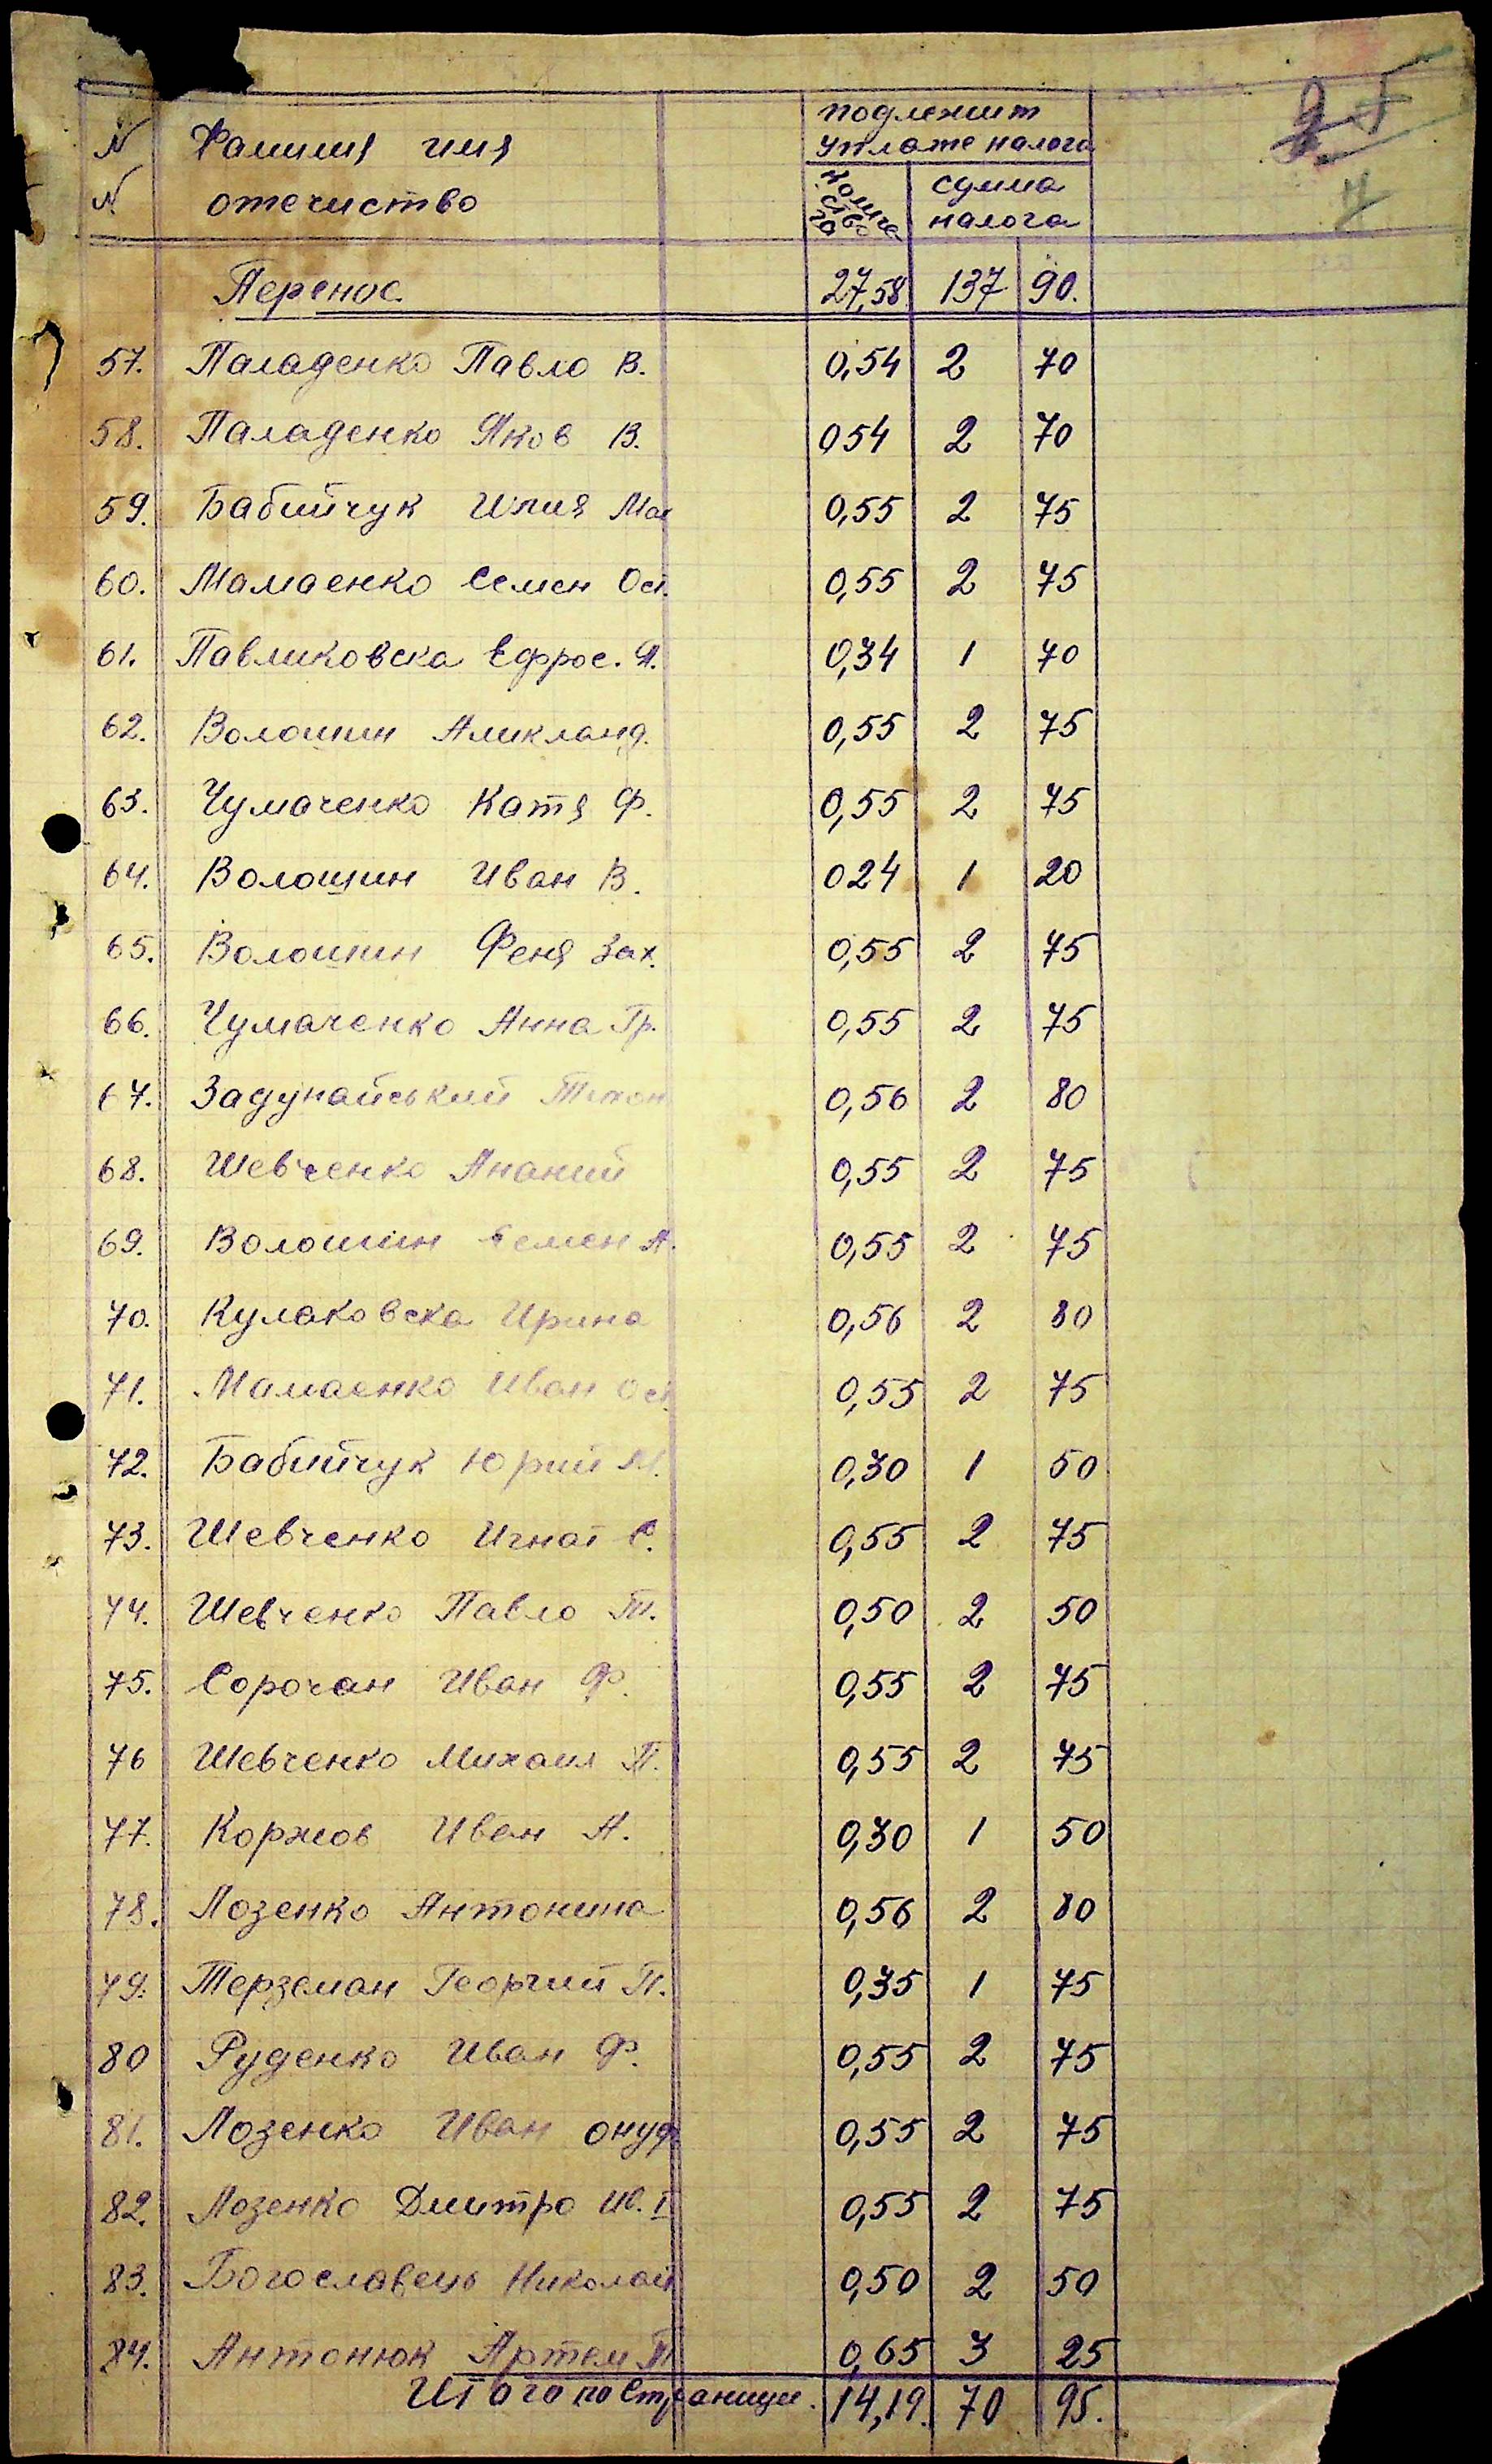 N Фамилия имя подлежит
уплате налога
N отечиство количество га сумма
налога
Перенос. 27,58 137 90.
57. Паладенко Павло В. 0,54 2 70
58. Паладенко Яков В. 054 2 70
59. Бабийчук Илия Мак 0,55 2 75
60. Мамаенко Семен Ост. 0,55 2 75
61. Павликовска Ефрос. Я. 0,34 1 70
62. Волошин Аликланд. 0,55 2 75
63. Чумаченко Катя Ф. 0,55 2 75
64. Волошин Иван В. 024 1 20
65. Волошин Феня Зах. 0,55 2 75
66. Чумаченко Анна Гр. 0,55 2 75
67. Задунайський Тихон 0,56 2 80
68. Шевченко Ананий 0,55 2 75
69. Волошин Семен А. 0,55 2 75
70. Кулаковска Ирина 0,56 2 80
71. Мамаенко Иван Ост. 0,55 2 75
72. Бабийчук Юрий М. 0,30 1 50
73. Шевченко Игнат С. 0,55 2 75
74. Шевченко Павло Т. 0,50 2 50
75. Сорочан Иван Ф. 0,55 2 75
76 Шевченко Михаил П. 0,55 2 75
77. Коржов Иван А. 0,30 1 50
78. Лозенко Антонина 0,56 2 80
79. Терземан Георгий П. 0,35 1 75
80 Руденко Иван Ф. 0,55 2 75
81. Лозенко Иван Онуф 0,55 2 75
82. Лозенко Дмитро Ив. I 0,55 2 75
83. Богославець Николай 0,50 2 50
84. Антонюк Артем П 0,65 3 25
Итого по странице. 14,19. 70 95.